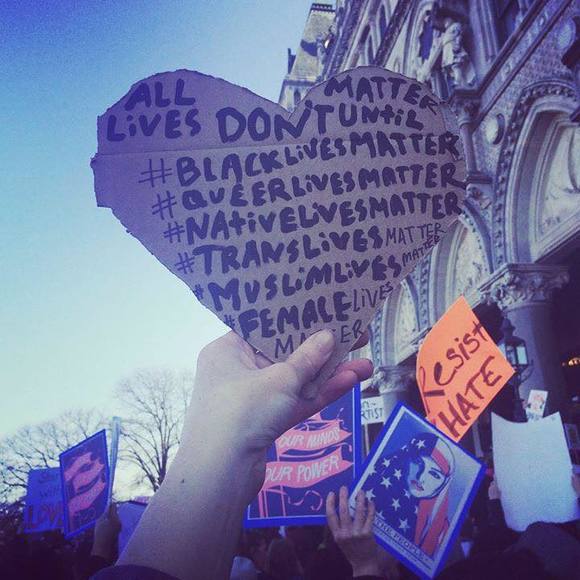 ALL LIVES DON'T MATTER UNtiL
#BLACKLIVESMATTER
#QUEERLIVESMATTER
#NATIVELIVESMATTER
#TRANSLIVESMATTER
#MUSLIMLIVESMATTER
#FEMALELIVES
MATTER
Resist
HATE
OUR MINDS
OUR POWER
THE PEOPLE
LOVE
RTIST